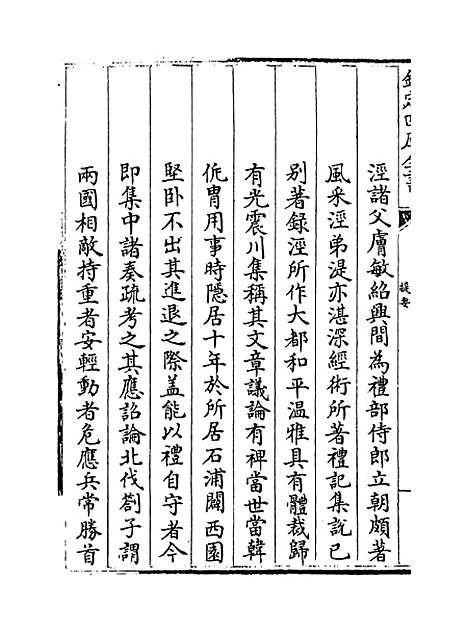 欽定四庫全書
提要
涇諸父膚敏紹興間為禮部侍郎立朝頗著
風采涇弟湜亦湛深經術所著禮記集說已
别著錄涇所作大都和平温雅具有體裁歸
有光震川集稱其文章議論有裨當世當韓
侂胄用事時隱居十年於所居石浦闢西園
堅卧不出其進退之際盖能以禮自守者今
即集中諸奏疏考之其應詔論北伐劄子謂
兩國相敵持重者安輕動者危應兵常勝首